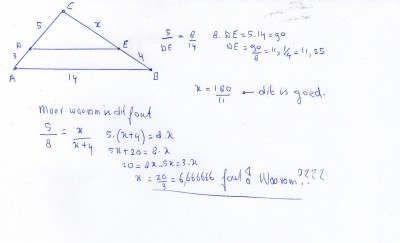 C
5
x
D
E
3
4
A
14
B
5/DE = 8/14
8. DE = 5.14 = 90
DE = 90/8 = 11, 1/4 = 11, 25
x = 180/11 ← dit is goed.
Maar waarom is dit fout
5/8 = x/x+4
5.(x+4) = 8.x
5x+20 = 8.x
20 = 8x-5x = 3.x
x = 20/3 = 6,666666 fout! Waarom????